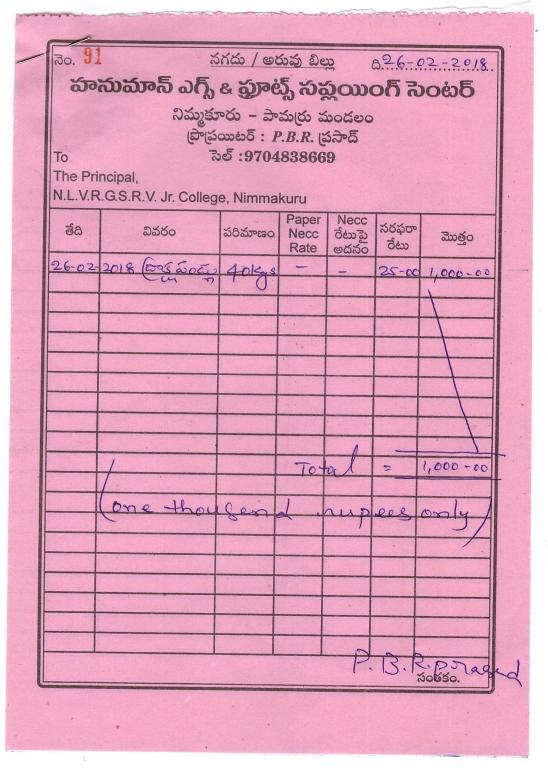 నెం. 91 నగదు / అరువు బిల్లు ది.26-02-2018
హనుమాన్ ఎగ్స్ & ఫ్రూట్స్ సప్లయింగ్ సెంటర్
నిమ్మకూరు - పామర్రు మండలం
ప్రొప్రయిటర్ : P.B.R. ప్రసాద్
సెల్ :9704838669
To
The Principal,
N.L.V.R.G.S.R.V. Jr. College, Nimmakuru
తేది వివరం పరిమాణం Paper Necc Rate Necc రేటుపై అదనం సరఫరా రేటు మొత్తం
26-02-2018 ద్రాక్ష పండ్లు 40kgs - - 25-00 1,000-00
Total = 1,000-00
(one thousand rupees only)
P. B. R. prasad
సంతకం.